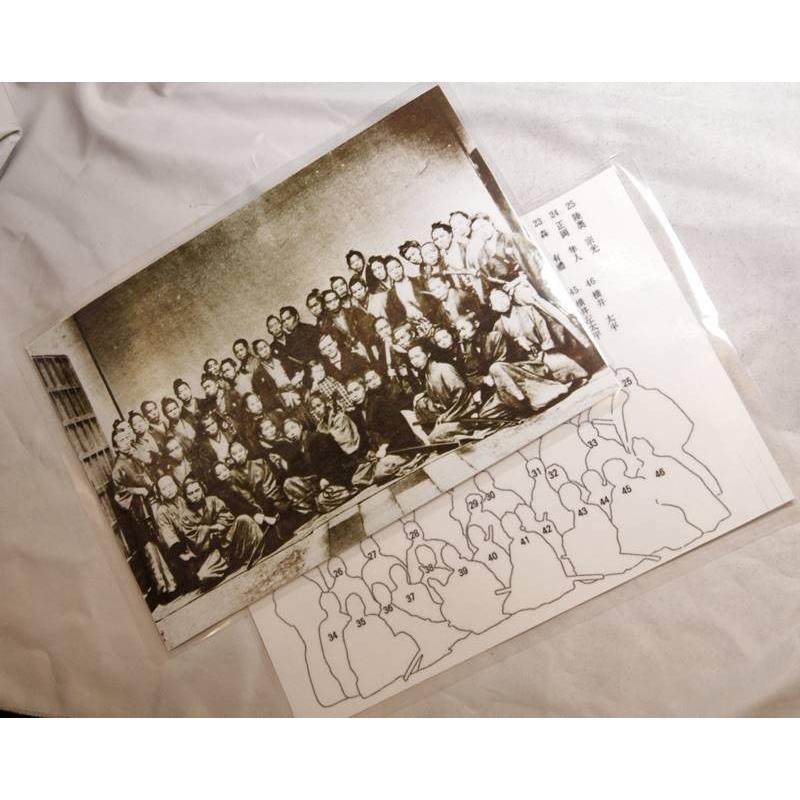 25 陸奥 宗光
24 正岡 隼人
23 森 有禮
46 横井 太平
45 横井左太平
25
33
31
32
46
30
29
45
44
43
42
41
28
40
27
39
38
26
37
36
35
34